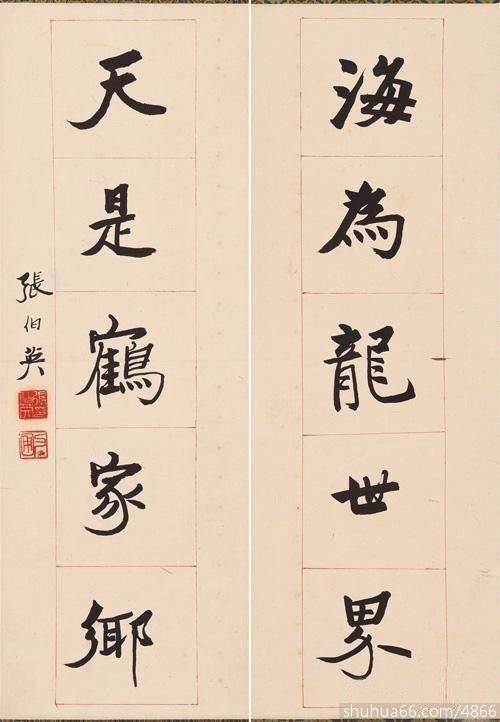 海為龍世界
天是鶴家鄉
張伯英
shuhua66.com/4866